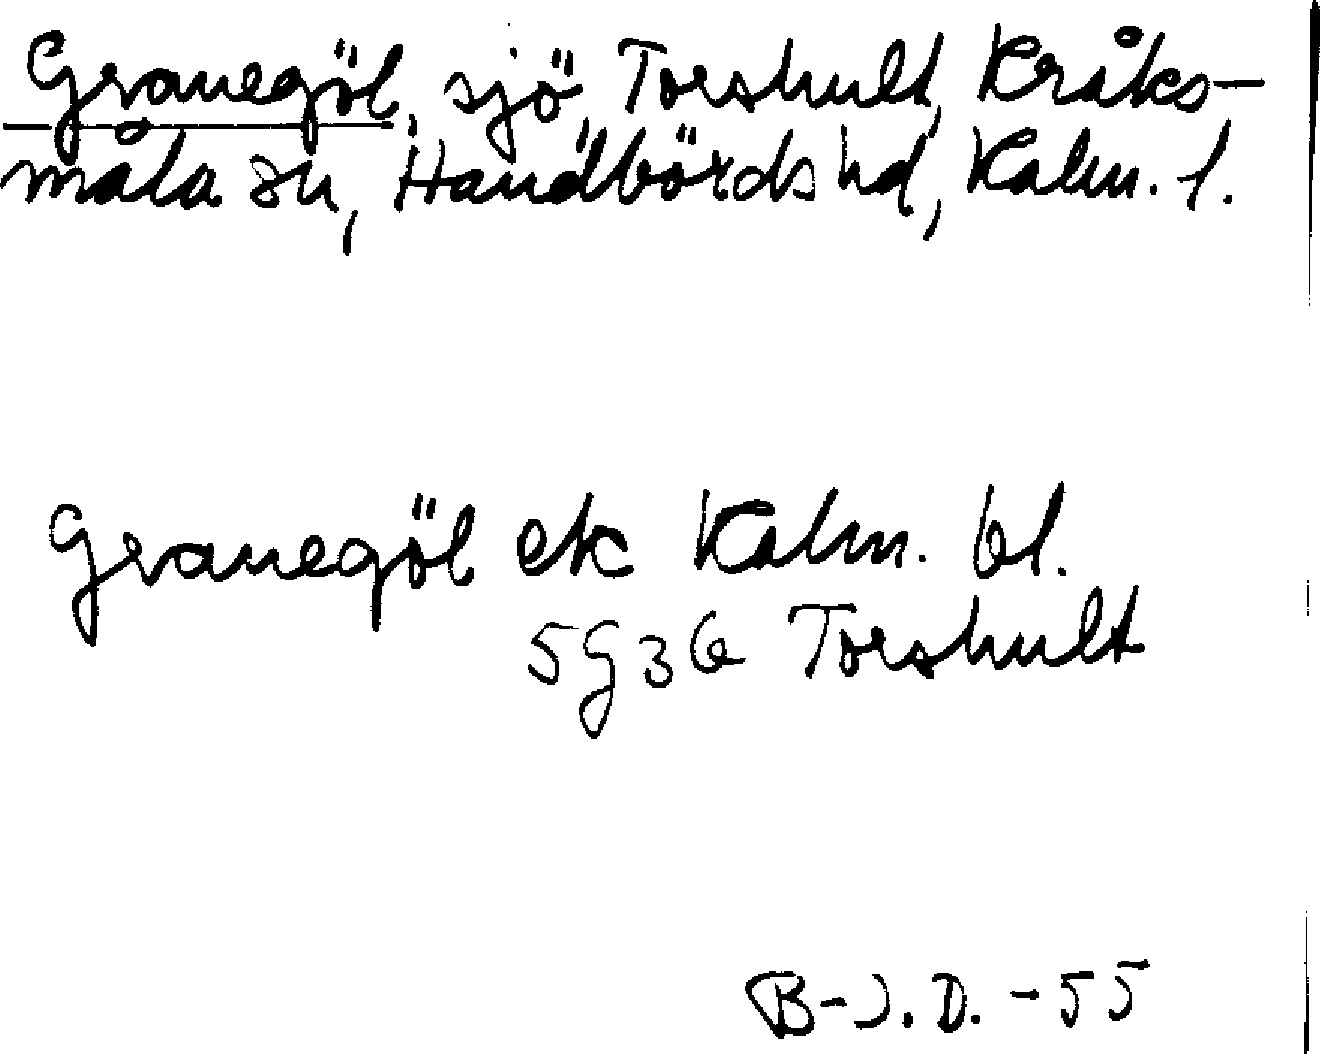 Granegöl, sjö, Torshult, Kråks-
måla sn, Handbörds hd, Kalm. l.
Granegöl ek Kalm. bl.
5g36 Torshult
B-J.D. -55